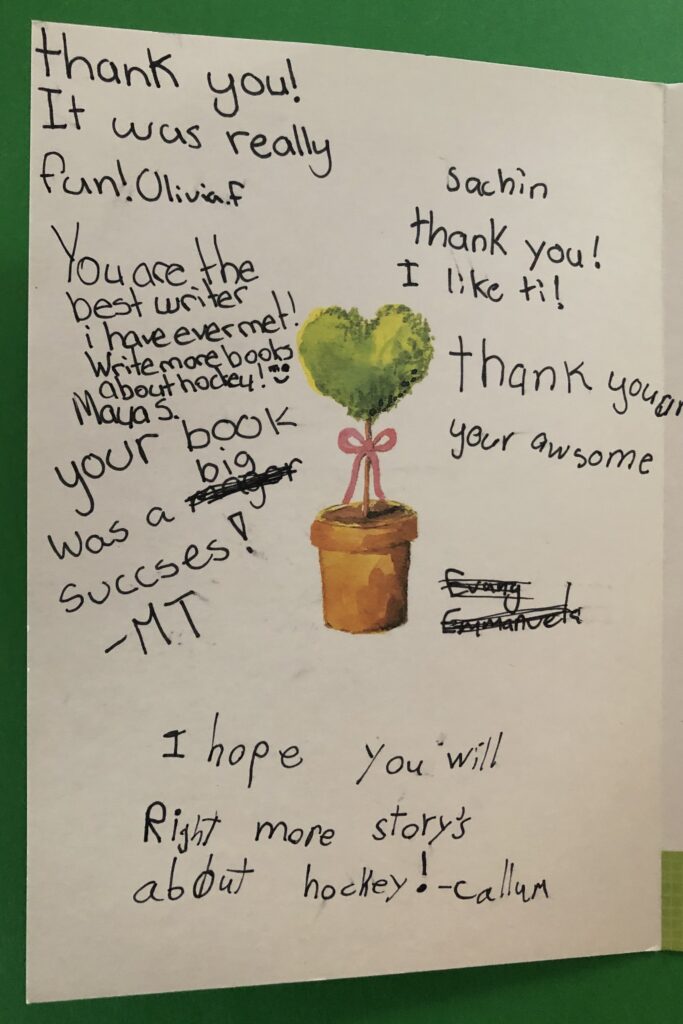 thank you!
It was really
fun! Olivia.f
You are the
best writer
i have ever met!
Write more books
about hockey!
Maya S.
your book
was a big
succses!
-MT
Sachin
thank you!
I like ti!
thank you
your awsome
Evany
Emmanuela
I hope you will
Right more story's
about hockey! -callum